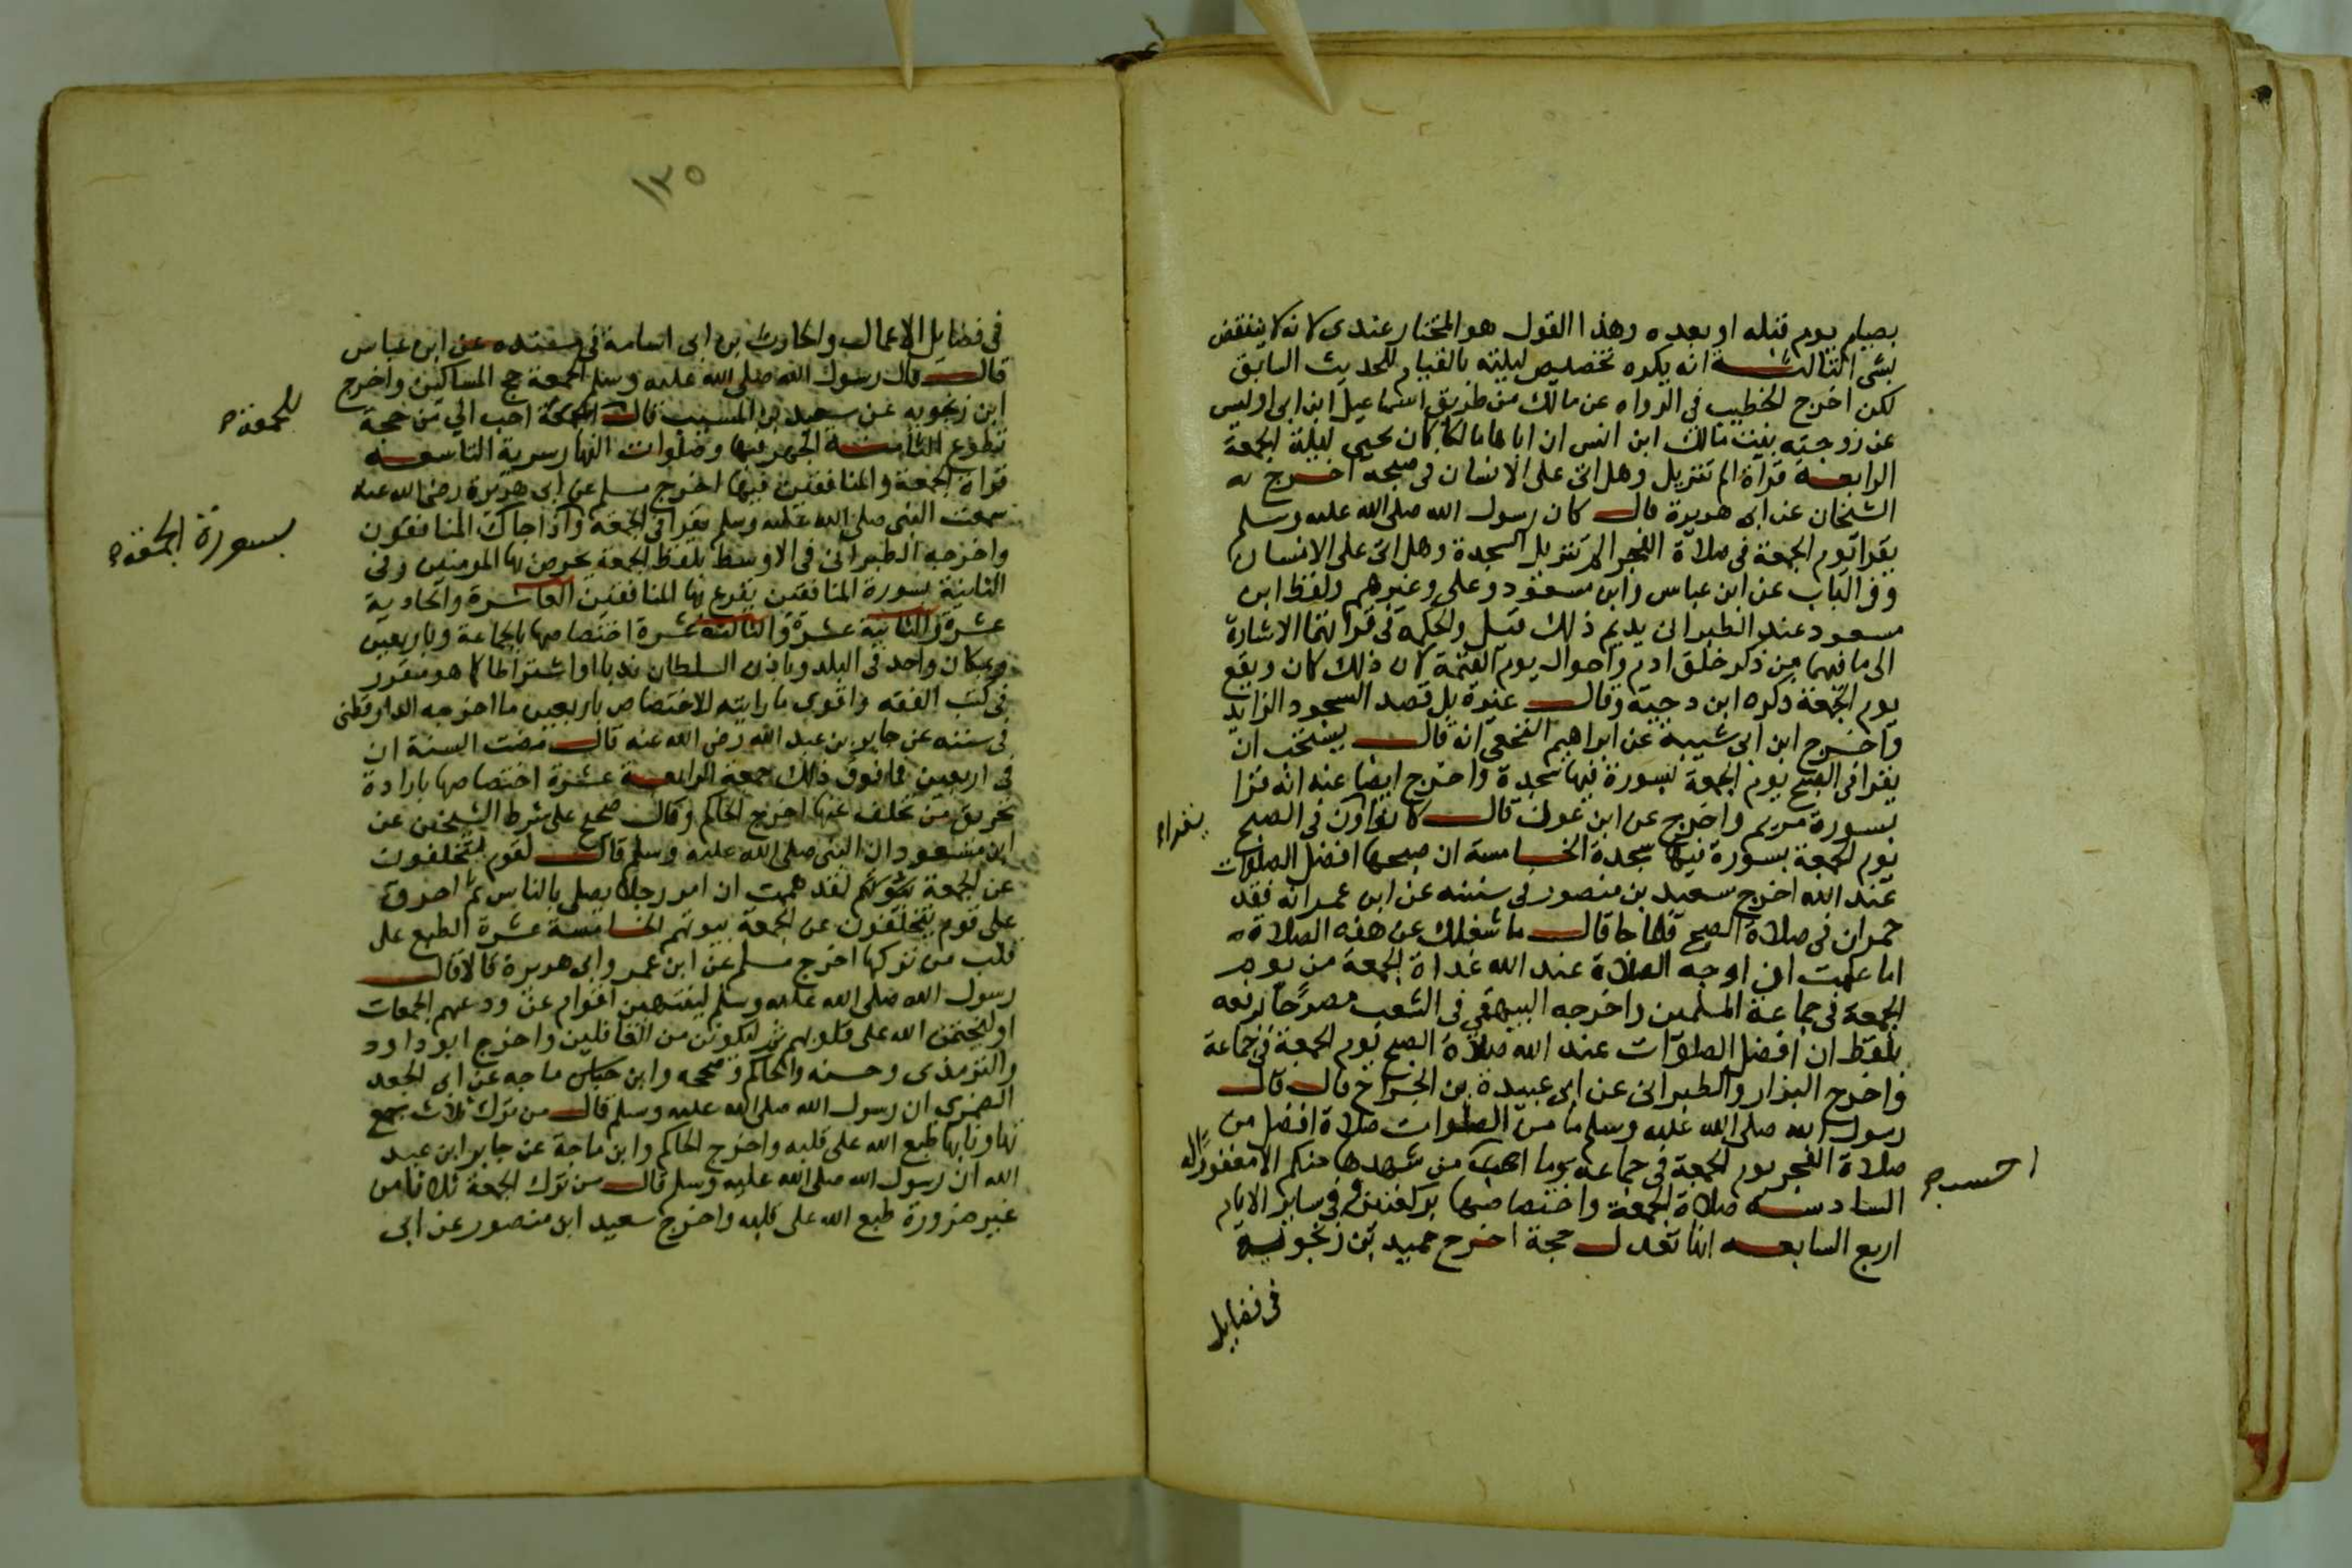 بصيام يوم قبله او بعده وهذا القول هو المختار عندى لانه لا ينتقض
بشى الثالثة انه يكره تخصيص ليلته بالقيام للحديث السابق
لكن اخرج الخطيب فى الرواه عن مالك من طريق اسماعيل ابن ابى اويس
عن زوجته بنت مالك ابن انس ان اباها مالكا كان يحيى ليلة الجمعة
الرابعة قرآة الم تنزيل وهل اتى على الانسان فى صبحه اخرج
الشيخان عن ابى هريرة قال كان رسول الله صلى الله عليه وسلم
يقرا يوم الجمعة فى صلاة الفجر الم تنزيل السجدة وهل اتى على الانسان
وفى الباب عن ابن عباس وابن مسعود وعلى وغيرهم ولفظ ابن
مسعود عند الطبرانى يديم ذلك قيل والحكمة فى قراتهما الاشارة
الى ما فيهما من ذكر خلق ادم واحوال يوم القيمة لان ذلك كان ويقع
يوم الجمعة ذكره ابن دحية وقال غيره بل قصد السجود الزايد
واخرج ابن ابى شيبة عن ابراهيم النخعى انه قال يستحب ان
يقرا فى الصبح يوم الجمعة بسورة فيها سجدة واخرج ايضا عنه انه قرا
بسورة مريم واخرج عن ابن عون قال كانوا يقراون فى الصبح
يقراء
يوم الجمعة بسورة فيها سجدة الخامسة ان صبحها افضل الصلوات
عند الله اخرج سعيد بن منصور فى سننه عن ابن عمر انه فقد
حمران فى صلاة الصبح فلما جا قال ما شغلك عن هذه الصلاة
اما علمت ان اوجه الصلاة عند الله غداة الجمعة من يوم
الجمعة فى جماعة المسلمين واخرجه البيهقي فى الشعب مصرحا برفعه
بلفظ ان افضل الصلوات عند الله صلاة الصبح يوم الجمعة فى جماعة
واخرج البزار والطبرانى عن ابى عبيدة بن الجراح قال قال
رسول الله صلى الله عليه وسلم ما من الصلوات صلاة افضل من
صلاة الفجر يوم الجمعة فى جماعة وما احسب من شهدها منكم الا مغفورا له
احسب
السادسة صلاة الجمعة واختصاصها بركعتين وفى ساير الايام
اربع السابعة انها تعدل حجة اخرج حميد بن زنجوية
فى فضايل
١٣٥
فى فضايل الاعمال والحارث بن ابى اسامة فى مسنده عن ابن عباس
قال قال رسول الله صلى الله عليه وسلم الجمعة حج المساكين واخرج
ابن زنجويه عن سعيد بن المسيب قال الجمعة احب الي من حجة
للجمعة
تطوع الثامنة الجهر فيها وصلوات النهار سرية التاسعة
قراة الجمعة والمنافقين فيها اخرج مسلم عن ابى هريرة رضى الله عنه
سمعت النبى صلى الله عليه وسلم يقرا فى الجمعة واذا جاك المنافقون
بسورة الجمعة
واخرجه الطبرانى فى الاوسط بلفظ الجمعة يحرض بها المومنين وفى
الثانية بسورة المنافقين يقرع بها المنافقين العاشرة والحادية
عشرة والثانية عشرة والثالثة عشرة اختصاصها بالجماعة وباربعين
وبمكان واحد فى البلد وباذن السلطان ندبا او اشتراطا كما هو مقرر
فى كتب الفقه واقوى ما رايته للاختصاص باربعين ما اخرجه الدارقطنى
فى سننه عن جابر بن عبد الله رضى الله عنه قال مضت السنة ان
فى اربعين فما فوق ذالك جمعة الرابعة عشرة اختصاصها بارادة
تحريق من تخلف عنها اخرج الحاكم وقال صحيح على شرط الشيخين عن
ابن مسعود ان النبى صلى الله عليه وسلم قال لقوم يتخلفون
عن الجمعة لقد هممت ان امر رجلا يصلى بالناس ثم احرق
على قوم يتخلفون عن الجمعة بيوتهم الخامسة عشرة الطبع على
قلب من تركها اخرج مسلم عن ابن عمر وابى هريرة قالا قال
رسول الله صلى الله عليه وسلم لينتهين اقوام عن ودعهم الجمعات
او ليختمن الله على قلوبهم ثم ليكونن من الغافلين واخرج ابو داود
والترمذى وحسنه والحاكم وصححه وابن ماجه عن ابى الجعد
الضمرى ان رسول الله صلى الله عليه وسلم قال من ترك ثلاث جمع
تهاونا بها طبع الله على قلبه واخرج الحاكم وابن ماجة عن جابر ابن عبد
الله ان رسول الله صلى الله عليه وسلم قال من ترك الجمعة ثلاثا من
غير ضرورة طبع الله على قلبه واخرج سعيد ابن منصور عن ابى